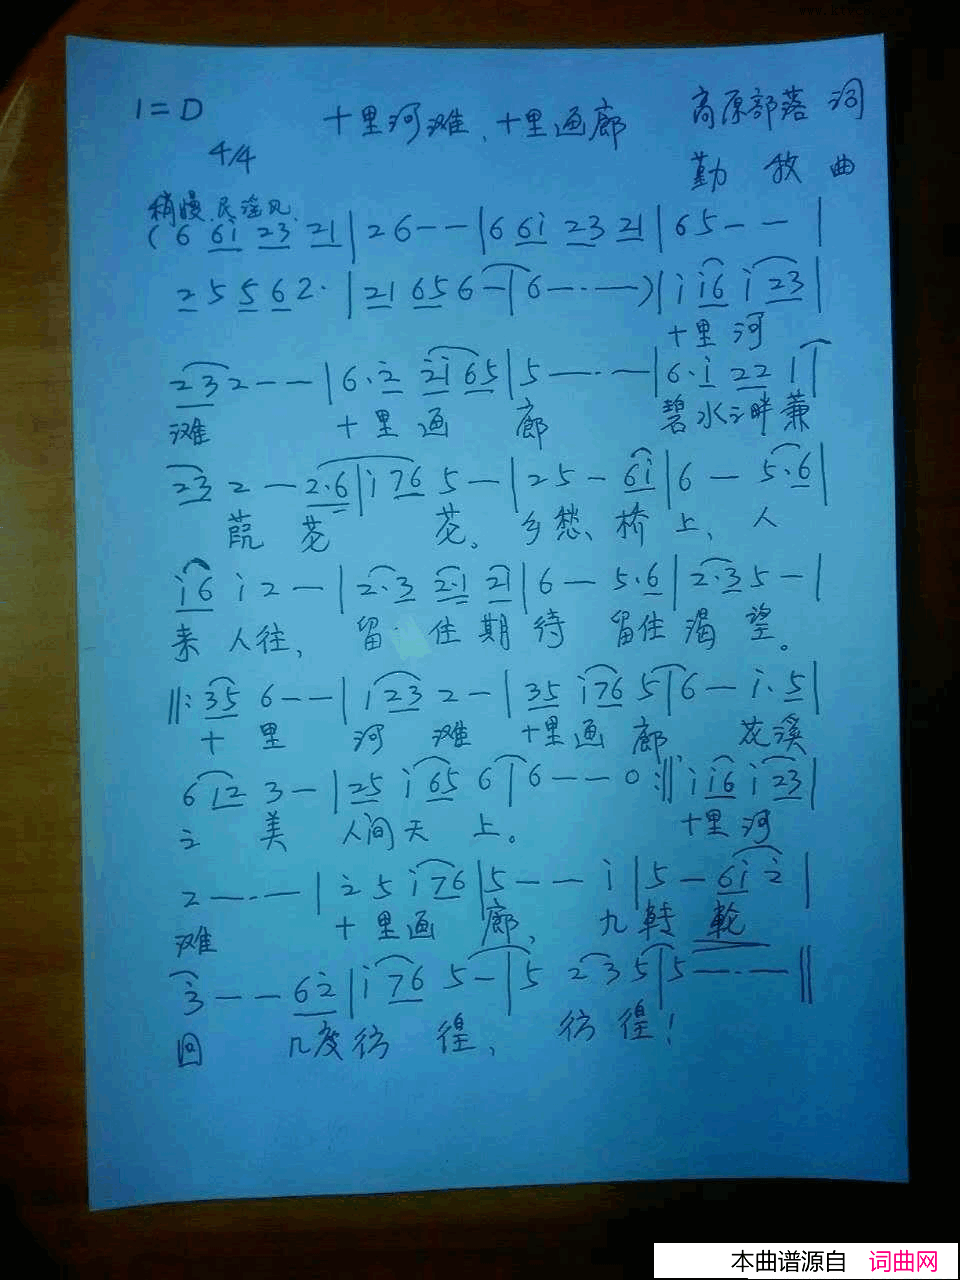 1=D 十里河滩、十里画廊 高原部落 词
4/4 勤牧 曲
稍慢 民谣风
(6 6i 23 21|26--|6 6i 23 21|65--|
2 5 5 6 2·|21 65 6-|6-·-·-)|i i6 i 23|
十里河
23 2--|6·2 2i 65|5-·-·-|6·i 22 1|
滩 十里画 廊 碧水之畔蒹
23 2-2·6|i 76 5-|25-6i|6-5·6|
葭花 花。乡愁、桥上、人
i6 i 2-|2·3 2·1 21|6-5·6|2·3 5-|
来人往, 留住期待 留住渴望。
||:35 6--|i 23 2-|35 i 76 5|6-i·5|
十里 河滩 十里画廊 花溪
6 12 3-|25 i 65 6|6--0:|| i i6 i 23|
之美 人间天上。 十里河
2-·-·-|2 5 i 76|5--i|5-6i 2|
滩 十里画 廊、 九转轮
3--62|i 76 5-|5 2 3 5|5-·-·-||
回 几度彷徨、 彷徨!
本曲谱源自 词曲网